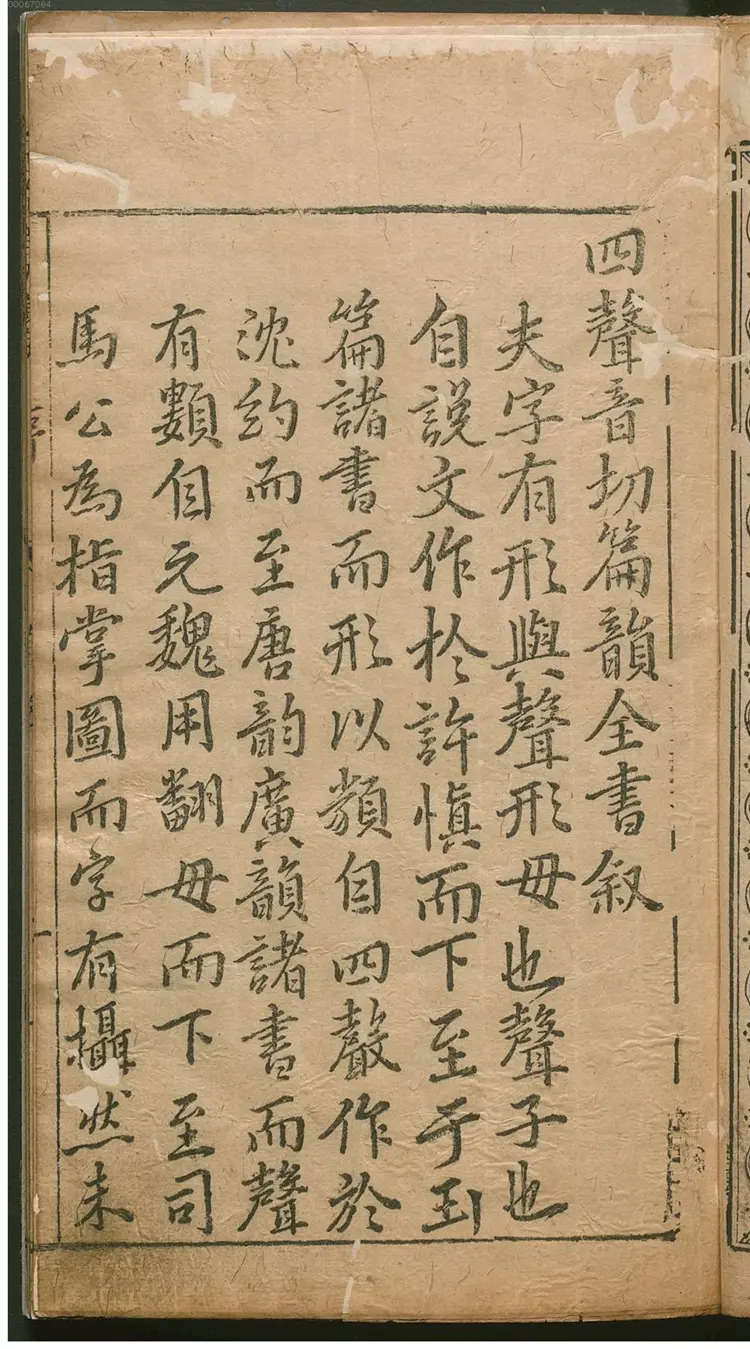 四聲音切篇韻全書叙
夫字有形與聲形毋也聲子也
自説文作於許慎而下至于玉
篇諸書而形以類自四聲作於
沈約而至唐韵廣韻諸書而聲
有類自元魏用翻毋而下至司
馬公為指掌圖而字有攝然未
00067064